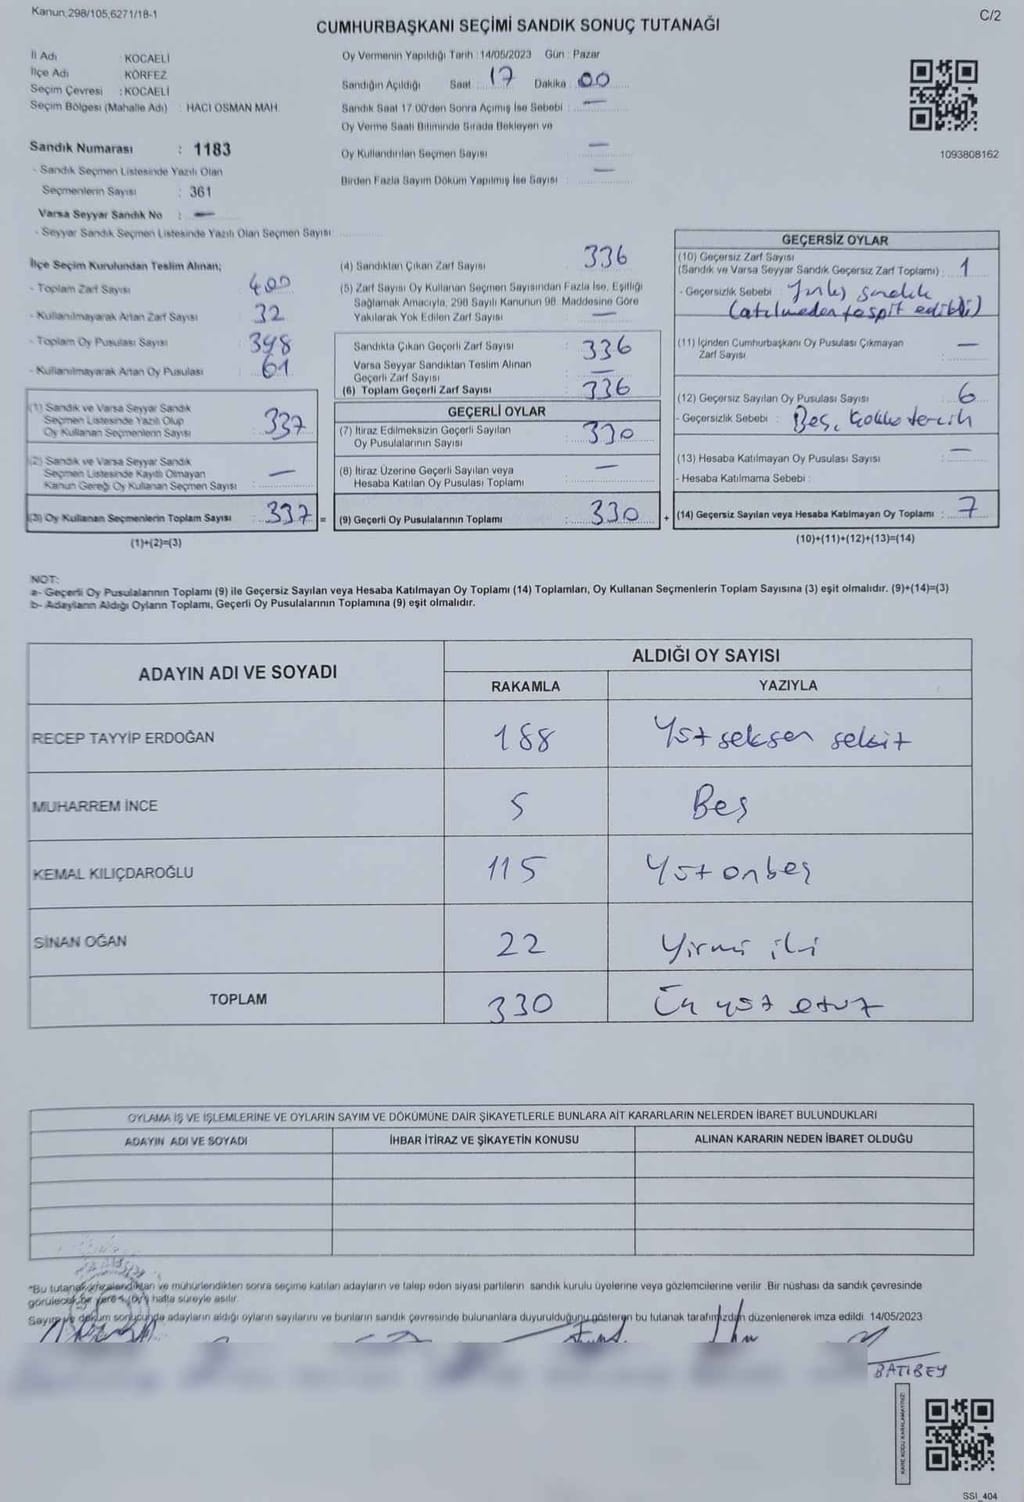 Kanun,298/105,6271/18-1
C/2
CUMHURBAŞKANI SEÇİMİ SANDIK SONUÇ TUTANAĞI
İl Adı KOCAELİ
İlçe Adı KÖRFEZ
Seçim Çevresi : KOCAELİ
Seçim Bölgesi (Mahalle Adı) : HACI OSMAN MAH
Sandık Numarası : 1183
- Sandık Seçmen Listesinde Yazılı Olan
Seçmenlerin Sayısı : 361
Varsa Seyyar Sandık No : —
- Seyyar Sandık Seçmen Listesinde Yazılı Olan Seçmen Sayısı
Oy Vermenin Yapıldığı Tarih : 14/05/2023 Gün : Pazar
Sandığın Açıldığı Saat : 17 Dakika : 00
Sandık Saat 17.00'den Sonra Açılmış İse Sebebi : —
Oy Verme Saati Bitiminde Sırada Bekleyen ve
Oy Kullandırılan Seçmen Sayısı : —
Birden Fazla Sayım Döküm Yapılmış İse Sayısı : —
1093808162
İlçe Seçim Kurulundan Teslim Alınan;
- Toplam Zarf Sayısı : 400
- Kullanılmayarak Artan Zarf Sayısı : 32
- Toplam Oy Pusulası Sayısı : 398
- Kullanılmayarak Artan Oy Pusulası : 61
(1) Sandık ve Varsa Seyyar Sandık
Seçmen Listesinde Yazılı Olup
Oy Kullanan Seçmenlerin Sayısı : 337
(2) Sandık ve Varsa Seyyar Sandık
Seçmen Listesinde Kayıtlı Olmayan
Kanun Gereği Oy Kullanan Seçmen Sayısı : —
(3) Oy Kullanan Seçmenlerin Toplam Sayısı : 337 =
(1)+(2)=(3)
(4) Sandıktan Çıkan Zarf Sayısı : 336
(5) Zarf Sayısı Oy Kullanan Seçmen Sayısından Fazla İse, Eşitliği
Sağlamak Amacıyla, 298 Sayılı Kanunun 98. Maddesine Göre
Yakılarak Yok Edilen Zarf Sayısı : —
Sandıkta Çıkan Geçerli Zarf Sayısı : 336
Varsa Seyyar Sandıktan Teslim Alınan
Geçerli Zarf Sayısı : —
(6) Toplam Geçerli Zarf Sayısı : 336
GEÇERLİ OYLAR
(7) İtiraz Edilmeksizin Geçerli Sayılan
Oy Pusulalarının Sayısı : 330
(8) İtiraz Üzerine Geçerli Sayılan veya
Hesaba Katılan Oy Pusulası Toplamı : —
(9) Geçerli Oy Pusulalarının Toplamı : 330 +
GEÇERSİZ OYLAR
(10) Geçersiz Zarf Sayısı
(Sandık ve Varsa Seyyar Sandık Geçersiz Zarf Toplamı) : 1
- Geçersizlik Sebebi : sandık
(atılmadan tespit edildi)
(11) İçinden Cumhurbaşkanı Oy Pusulası Çıkmayan
Zarf Sayısı : —
(12) Geçersiz Sayılan Oy Pusulası Sayısı : 6
- Geçersizlik Sebebi : Boş, tercih
(13) Hesaba Katılmayan Oy Pusulası Sayısı : —
- Hesaba Katılmama Sebebi :
(14) Geçersiz Sayılan veya Hesaba Katılmayan Oy Toplamı : 7
(10)+(11)+(12)+(13)=(14)
NOT:
a- Geçerli Oy Pusulalarının Toplamı (9) ile Geçersiz Sayılan veya Hesaba Katılmayan Oy Toplamı (14) Toplamları, Oy Kullanan Seçmenlerin Toplam Sayısına (3) eşit olmalıdır. (9)+(14)=(3)
b- Adayların Aldığı Oyların Toplamı, Geçerli Oy Pusulalarının Toplamına (9) eşit olmalıdır.
ADAYIN ADI VE SOYADI
ALDIĞI OY SAYISI
RAKAMLA YAZIYLA
RECEP TAYYİP ERDOĞAN 188 Yüz seksen sekiz
MUHARREM İNCE 5 Beş
KEMAL KILIÇDAROĞLU 115 Yüz onbeş
SİNAN OĞAN 22 Yirmi iki
TOPLAM 330 Üç yüz otuz
OYLAMA İŞ VE İŞLEMLERİNE VE OYLARIN SAYIM VE DÖKÜMÜNE DAİR ŞİKAYETLERLE BUNLARA AİT KARARLARIN NELERDEN İBARET BULUNDUKLARI
ADAYIN ADI VE SOYADI İHBAR İTİRAZ VE ŞİKAYETİN KONUSU ALINAN KARARIN NEDEN İBARET OLDUĞU
*Bu tutanak imzalandıktan ve mühürlendikten sonra seçime katılan adayların ve talep eden siyasi partilerin sandık kurulu üyelerine veya gözlemcilerine verilir .Bir nüshası da sandık çevresinde
görülecek bir yere 1 (bir) hafta süreyle asılır.
Sayım ve döküm sonucunda adayların aldığı oyların sayılarını ve bunların sandık çevresinde bulunanlara duyurulduğunu gösteren bu tutanak tarafımızdan düzenlenerek imza edildi. 14/05/2023
BATIBEY
KARE KODU KARALAMAYINIZ!
SSI_404